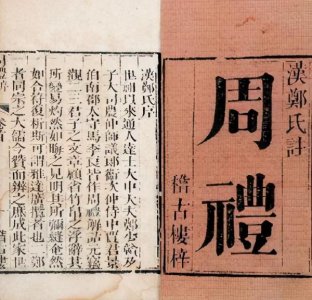 漢鄭氏註
周禮
稽古樓梓
漢鄭氏序
世祖以來通人達士大中大夫鄭少贛及
子大司農仲師議郎衛次仲侍中賈君景
伯南郡太守馬季長皆作周禮解詁元竊
觀二三君子之文章顧省竹帛之浮辭其
所變易灼然如晦之見明其所彌縫奄然
如合符復析斯可謂雅達廣攬者也二鄭
者同宗之大儒今贊而辨之庶成此家世